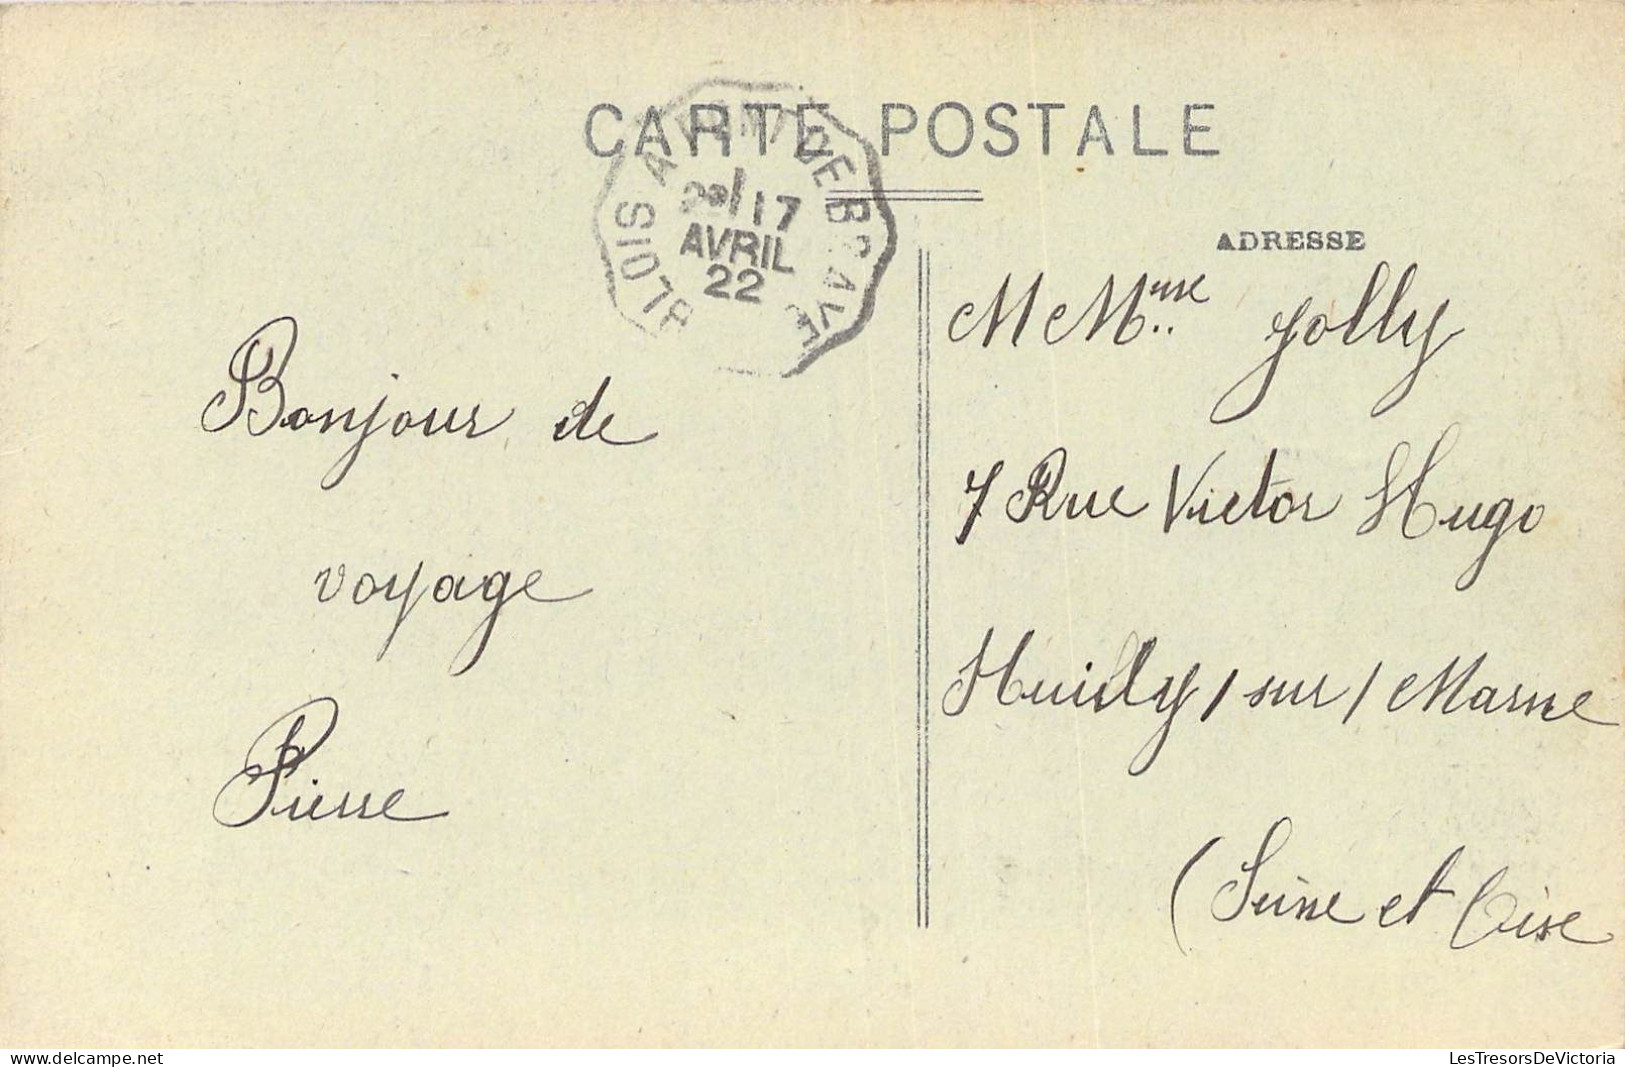 CARTE POSTALE
BLOIS A PONT DE BRAYE
17
AVRIL
22
ADRESSE
Bonjour de
voyage
Pierre
M Mme Jolly
7 Rue Victor Hugo
Neuilly/sur/Marne
(Seine et Oise
LesTresorsDeVictoria
delcampe.net